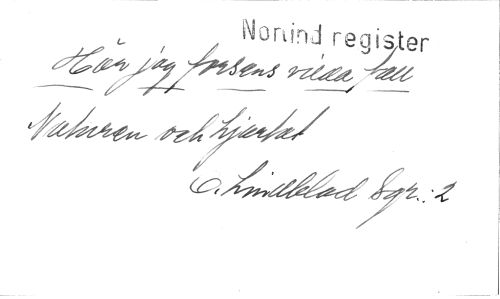 Nonind register
Hör jag forsens vilda fall
Naturen och hjartat
O. Lindblad Sgr.: 2